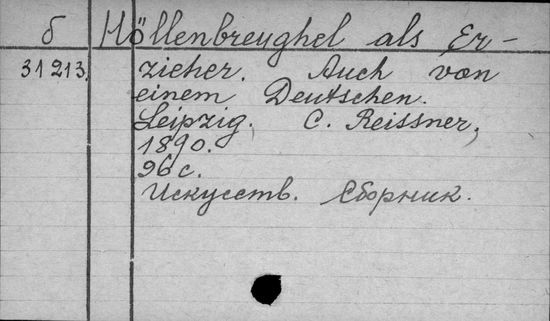 б Höllenbreughel als Er-
31213. zieher. Auch von
einem Deutschen.
Leipzig. C. Reissner,
1890.
96 с.
Искусств. Сборник.